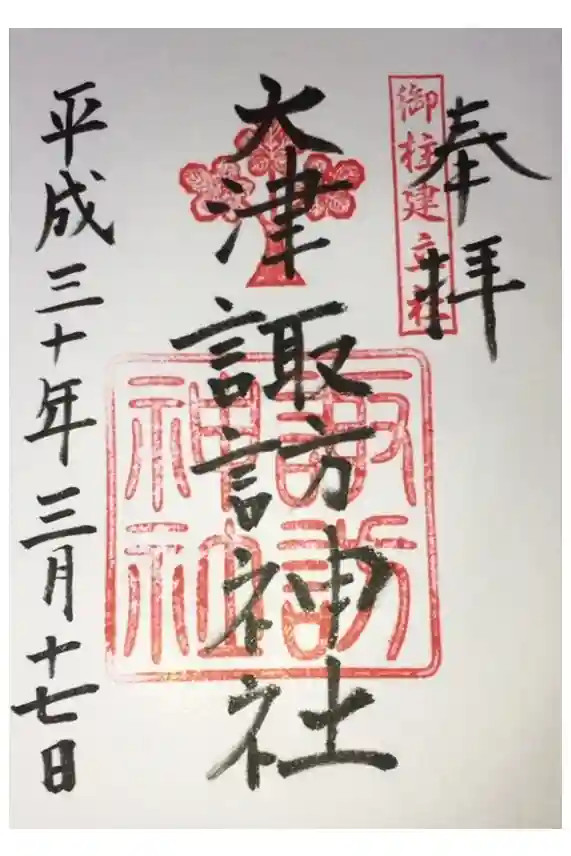 奉拝
御柱建立社
大津諏訪神社
諏訪神社
平成三十年三月十七日